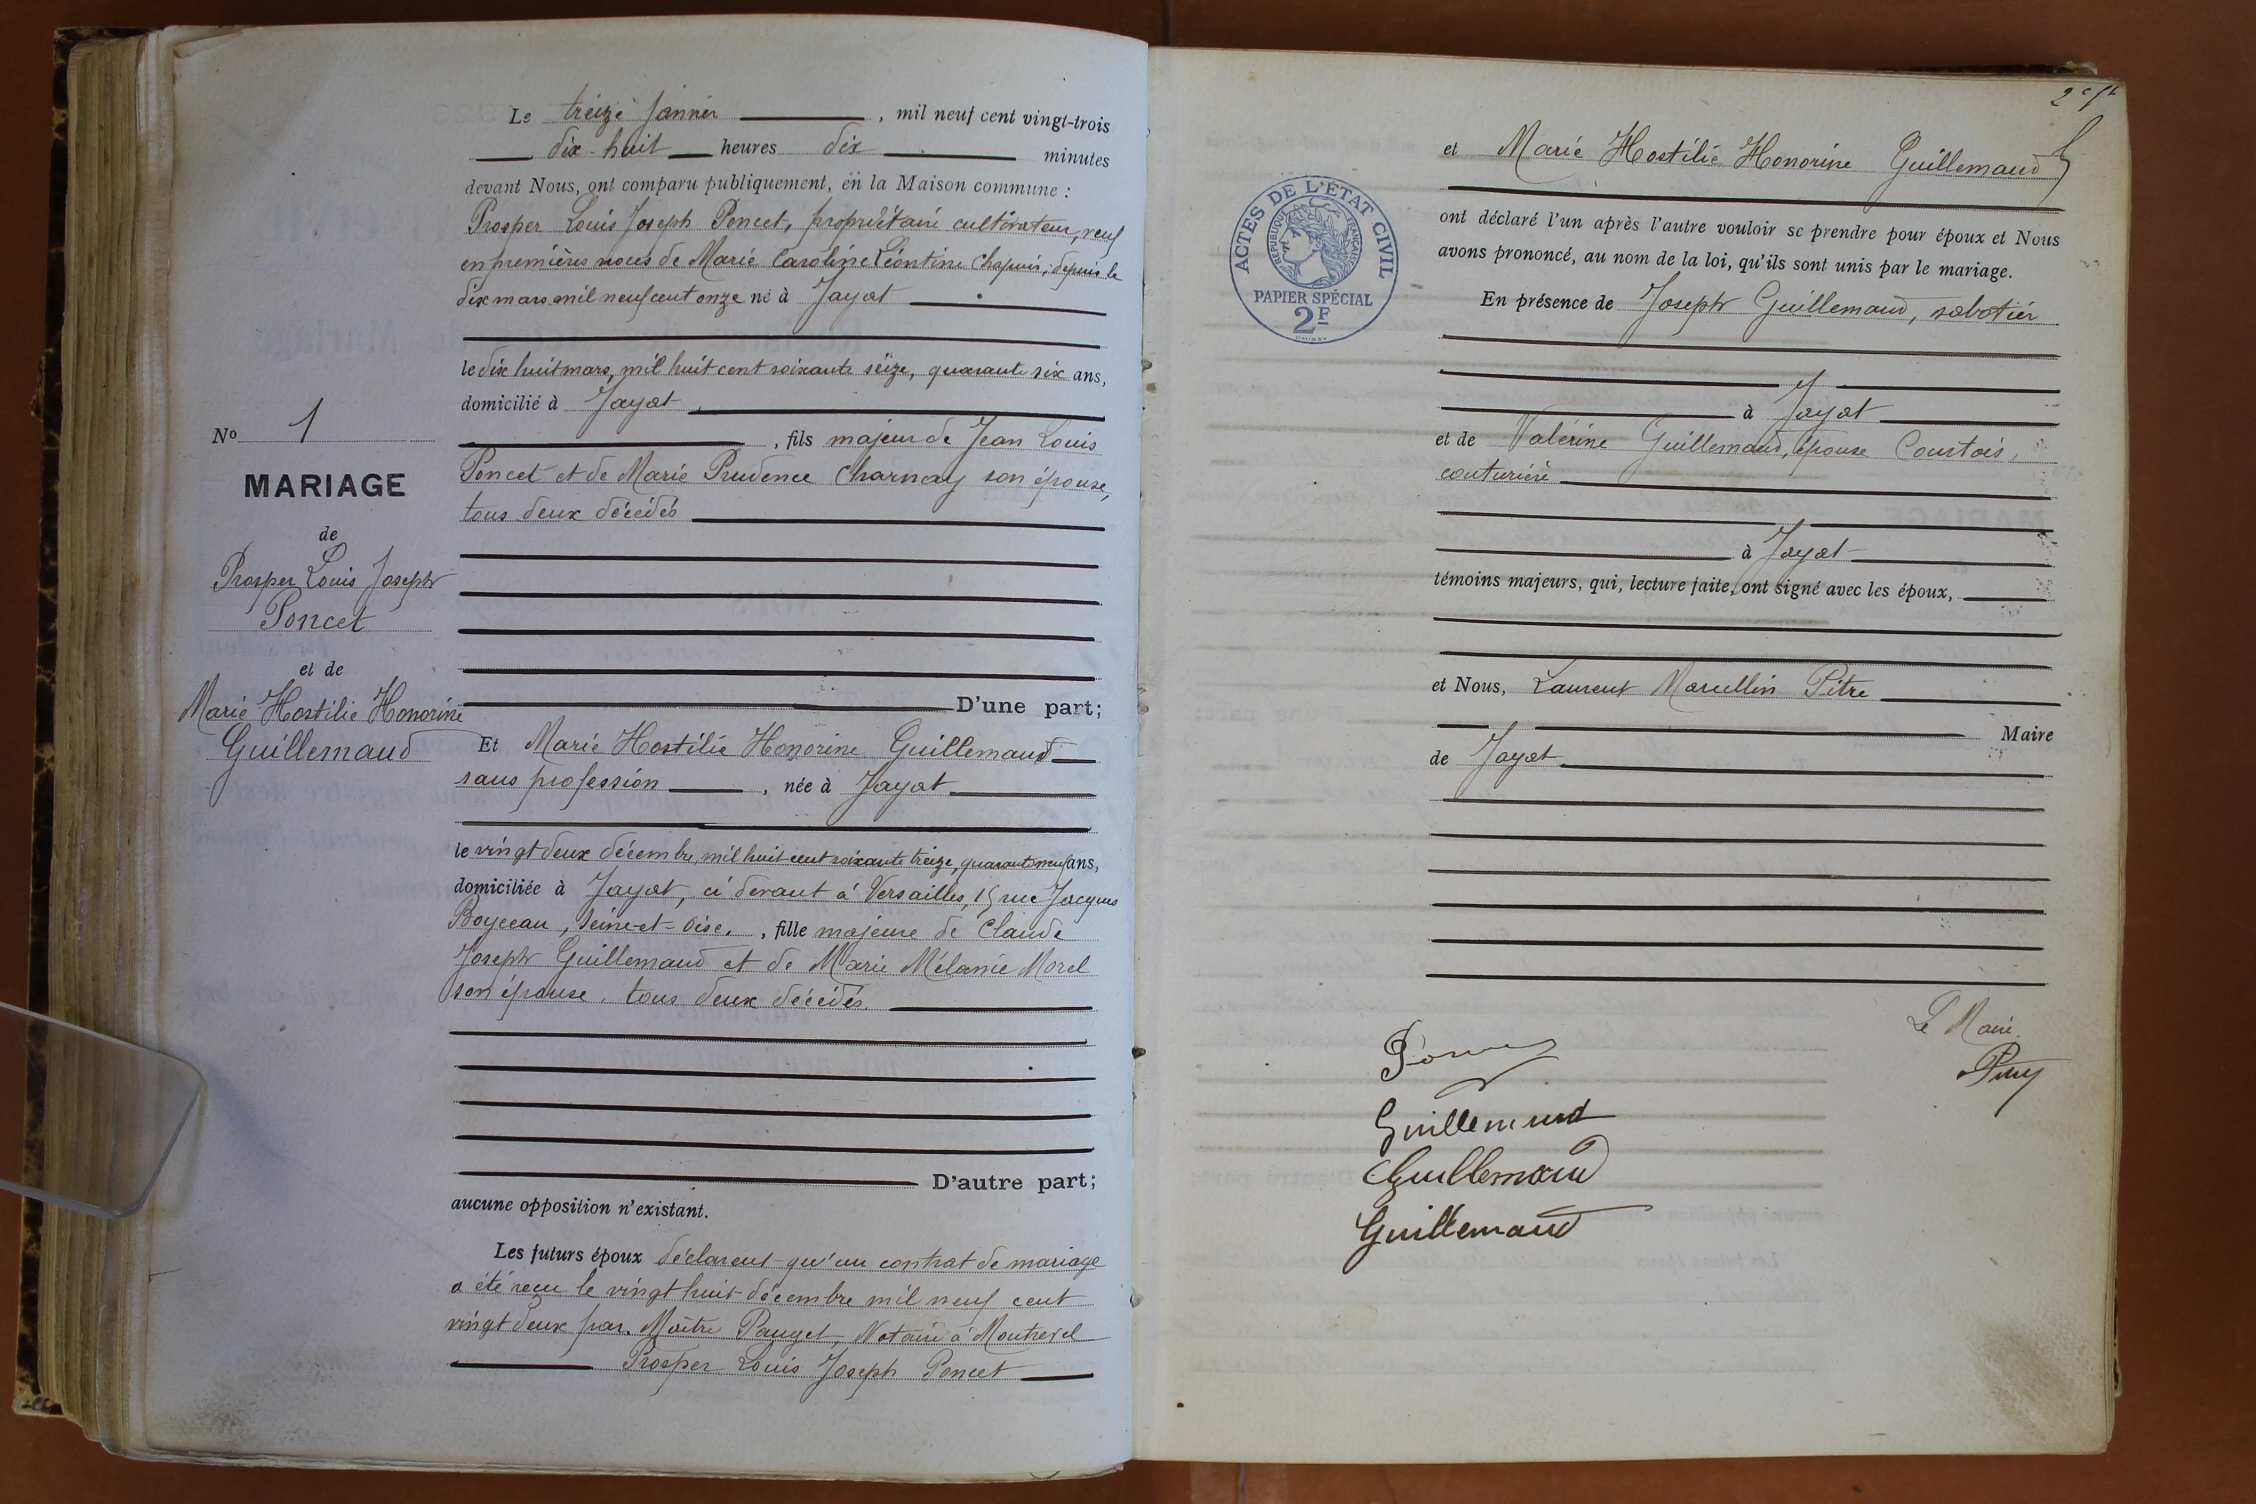 Le treize Janvier, mil neuf cent vingt-trois
dix-huit heures dix minutes
devant Nous, ont comparu publiquement, en la Maison commune :
Prosper Louis Joseph Poncet, propriétaire cultivateur, veuf
en premières noces de Marie Caroline Léontine Chapuis, depuis le
dix mars mil neuf cent onze né à Jayat
le dix huit mars, mil huit cent soixante seize, quarante six ans,
domicilié à Jayat
, fils majeur de Jean Louis
Poncet et de Marie Prudence Charnay son épouse,
tous deux décédés
D'une part;
No 1
MARIAGE
de
Prosper Louis Joseph
Poncet
et de
Marie Hostilie Honorine
Guillemaud
Et Marie Hostilie Honorine Guillemaud
sans profession, née à Jayat
le vingt deux décembre, mil huit cent soixante treize, quarante neuf ans,
domiciliée à Jayat, ci devant à Versailles, 15 rue Jacques
Boyceau, Seine-et-Oise, fille majeure de Claude
Joseph Guillemaud et de Marie Mélanie Morel
son épouse, tous deux décédés.
D'autre part;
aucune opposition n'existant.
Les futurs époux déclarent qu'un contrat de mariage
a été reçu le vingt huit décembre mil neuf cent
vingt deux par Maître Pauget, Notaire à Montrevel
Prosper Louis Joseph Poncet
et Marie Hostilie Honorine Guillemaud
ont déclaré l'un après l'autre vouloir se prendre pour époux et Nous
avons prononcé, au nom de la loi, qu'ils sont unis par le mariage.
En présence de Joseph Guillemaud, sabotier
à Jayat
et de Valérine Guillemaud, épouse Courtois,
couturière
à Jayat
témoins majeurs, qui, lecture faite, ont signé avec les époux,
et Nous, Laurent Marcellin Pitre
Maire
de Jayat
ACTES DE L'ÉTAT CIVIL
RÉPUBLIQUE FRANÇAISE
PAPIER SPÉCIAL
2F
Le Maire
Guillemaud
Guillemaud
Guillemaud